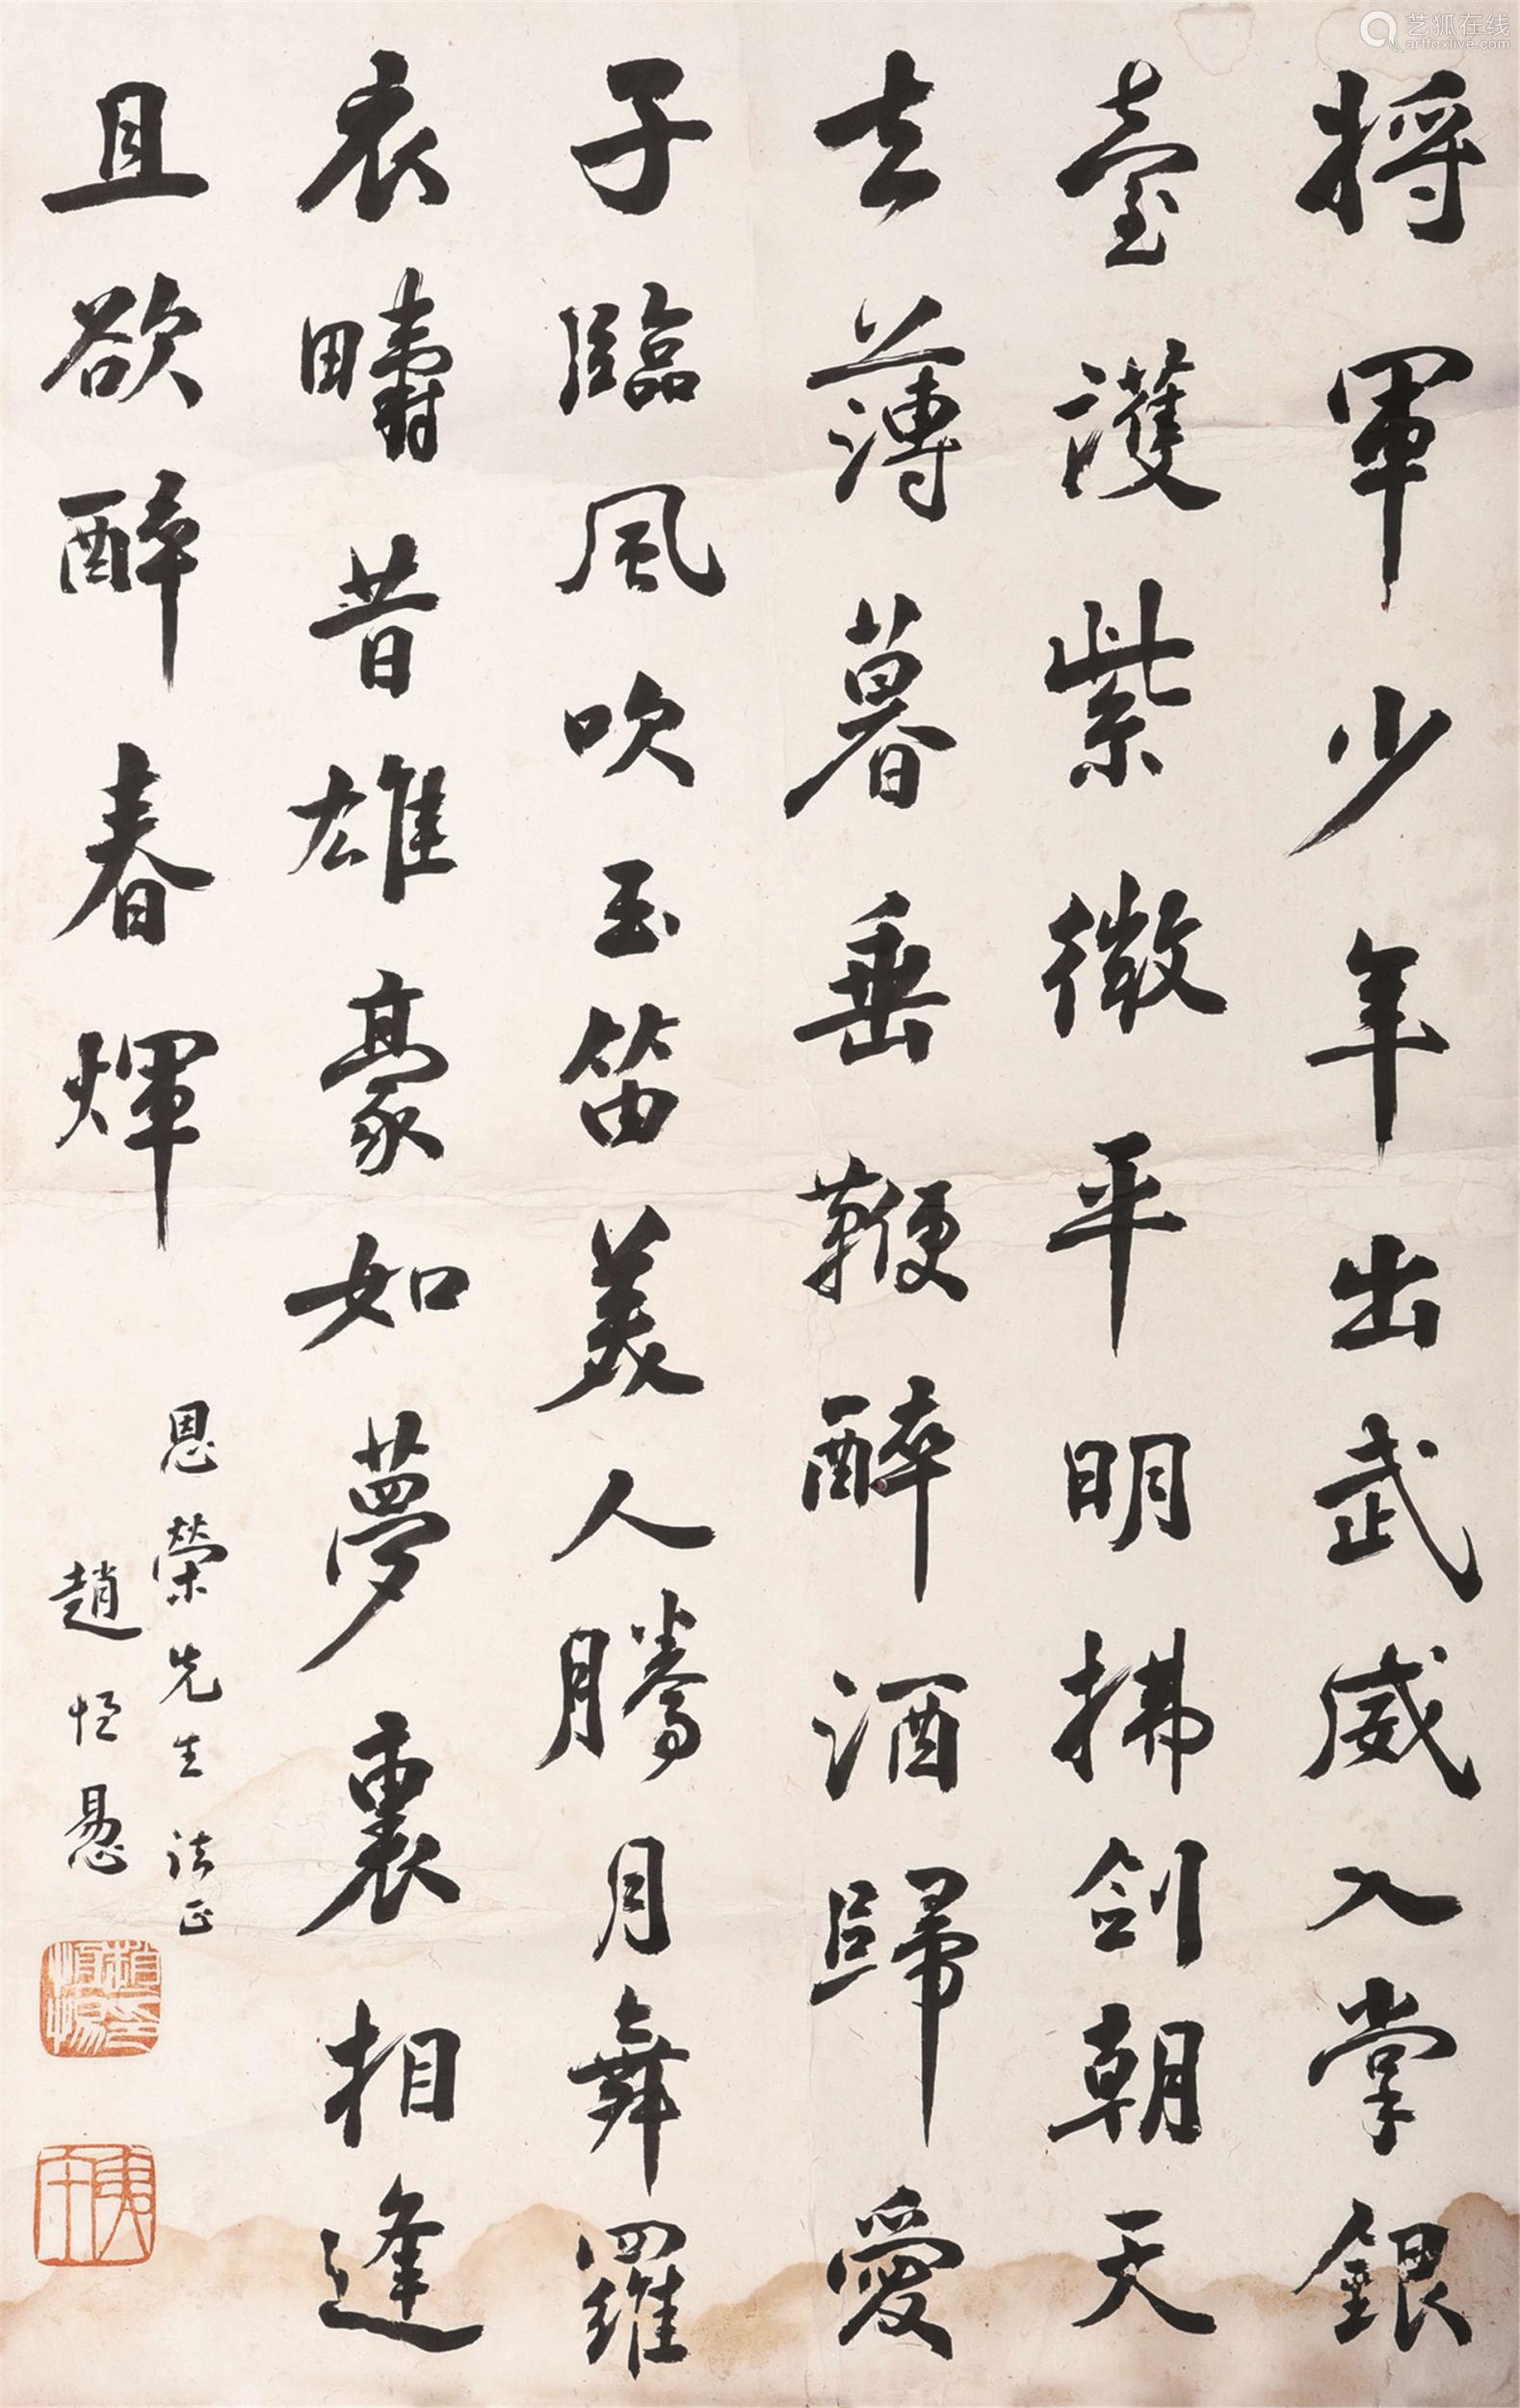 将軍少年出武威入掌銀
臺護紫微平明拂剑朝天
去薄暮垂鞭醉酒歸愛
子臨風吹玉笛美人騰月舞羅
衣疇昔雄豪如夢裏相逢
且欲醉春煇
恩榮先生法正
趙恒愚
艺狐在线
artfoxlive.com